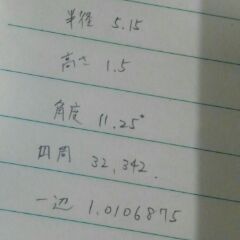 半径 5.15
高さ 1.5
角度 11.25°
四周 32,342.
一辺 1.0106875